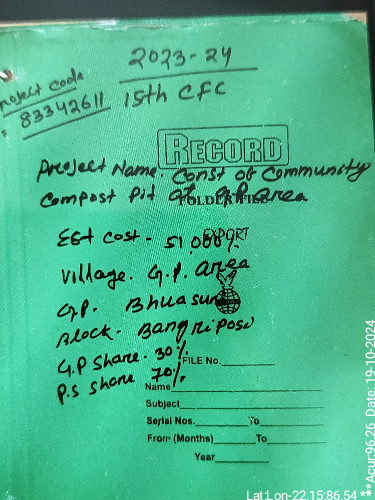 2023-24
Project Code
: 83342611
15th CFC
RECORD
Project Name. Const of Community
Compost Pit at G.P. area
FOLDER FILE
Est Cost - 51,000/-
EXPORT
Village. G.P. area
G.P. Bhuasuni
Block. Bangriposi
G.P Share. 30%
FILE No.
P.S Share 70%.
Name
Subject
Serial Nos. To
From (Months) To
Year
Lat Lon-22.15:86.54 **Acur:96.26 Date: 19-10-2024